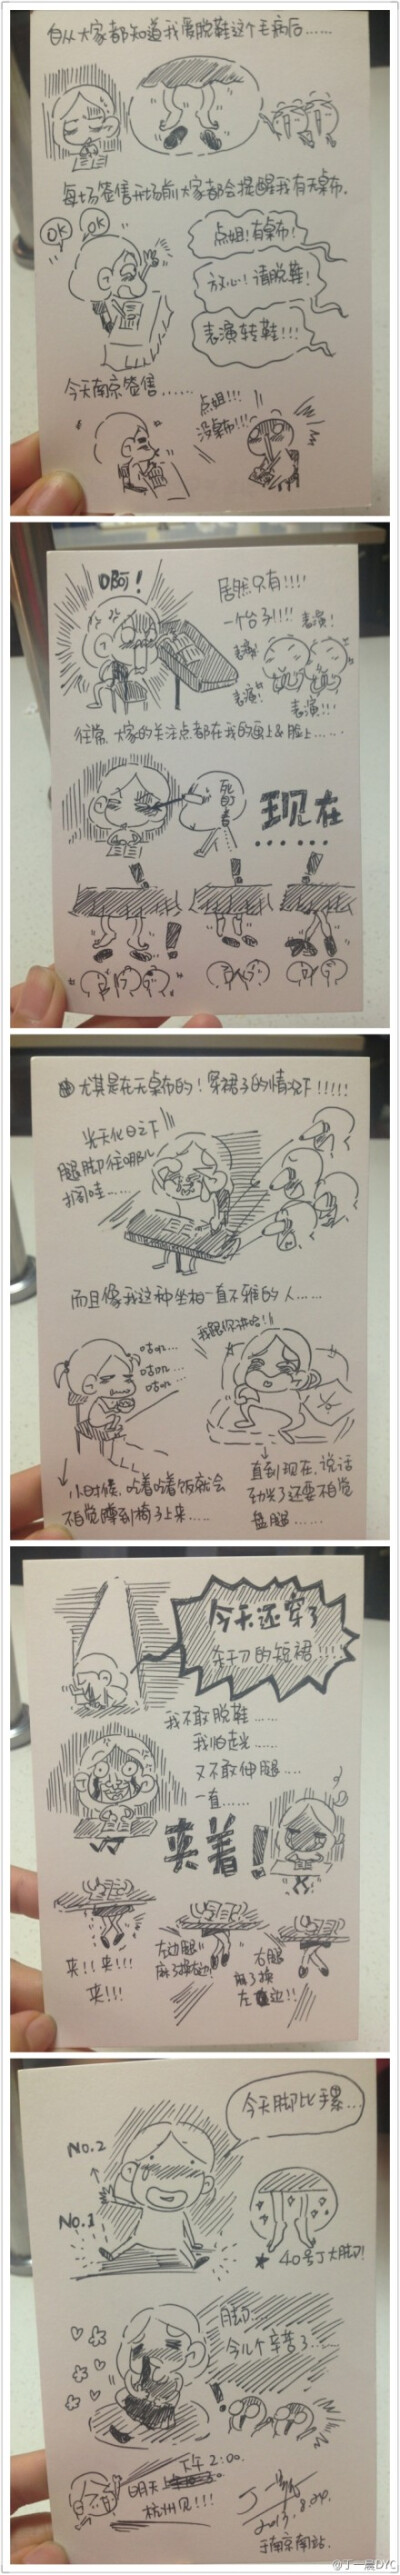 自从大家都知道我爱脱鞋这个毛病后……
每场签售开场前大家都会提醒我有无桌布.
OK
OK
点姐!有桌布!
放心!请脱鞋!
表演转鞋!!!
今天南京签售……
点姐!!!
没桌布!!!
啊!
居然只有!!!!
一个台子!!!!
表演!
表演!
表演!!
表演!!!
往常,大家的关注点都在我的画上&脸上……
现在
……
尤其是在无桌布的!穿裙子的情况下!!!!!
光天化日之下
腿脚往哪儿
搁哇……
而且像我这种坐相一直不雅的人……
咕叽…
咕叽…
咕叽…
我跟你讲哈!!
小时候,吃着吃着饭就会
不自觉蹲到椅子上来……
直到现在,说话
劲光了还要不自觉
盘腿……
今天还穿了
杀千刀的短裙!!!!
我不敢脱鞋……
我怕走光……
又不敢伸腿……
一直……
夹着!
夹!!夹!!!
夹!!!
左边腿
麻了换右边!
右腿
麻了换
左边!!
今天脚比手累…
No.2
No.1
40号丁大脚!
脚……
今儿个辛苦了……
下午2:00.
明天
杭州见!!!
2013.8.24.
于南京南站.
@丁一晨DYC